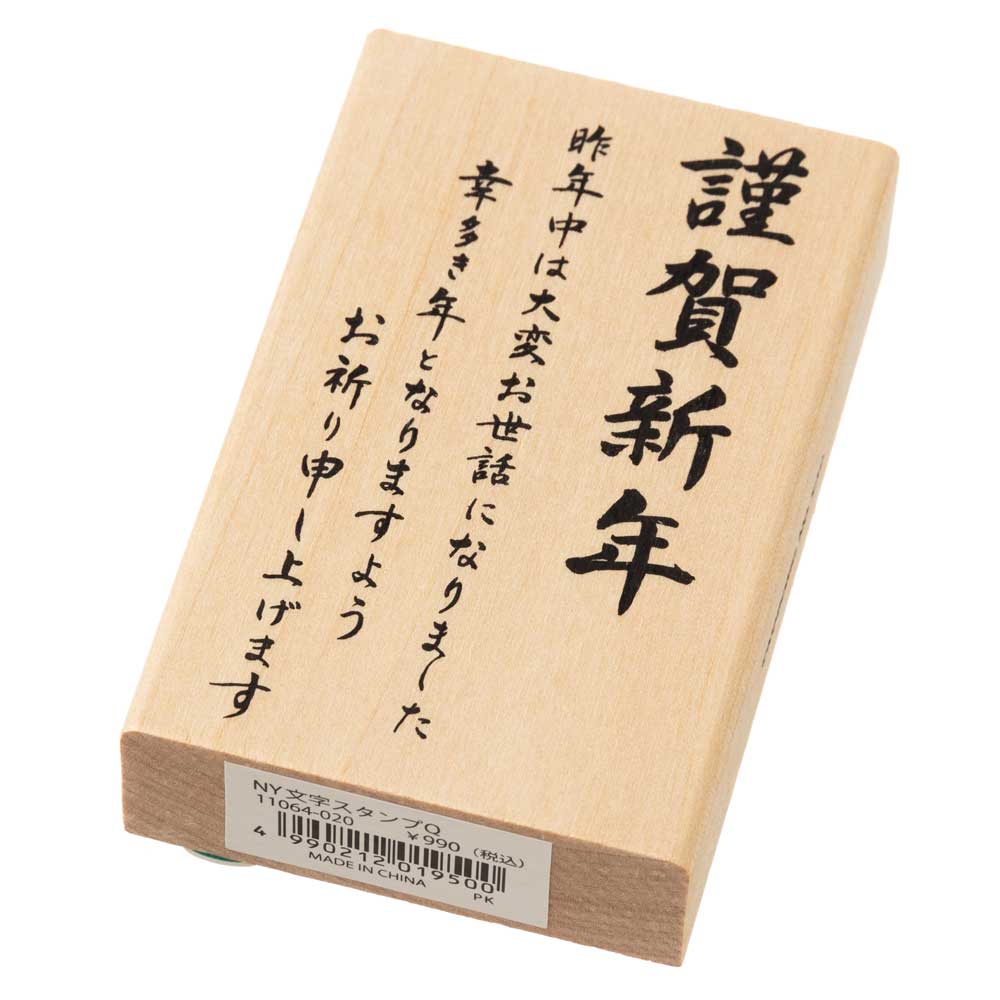 謹賀新年
昨年中は大変お世話になりました
幸多き年となりますよう
お祈り申し上げます
NY文字スタンプQ
11064-020 ¥990（税込）
4 990212 019500
MADE IN CHINA PK